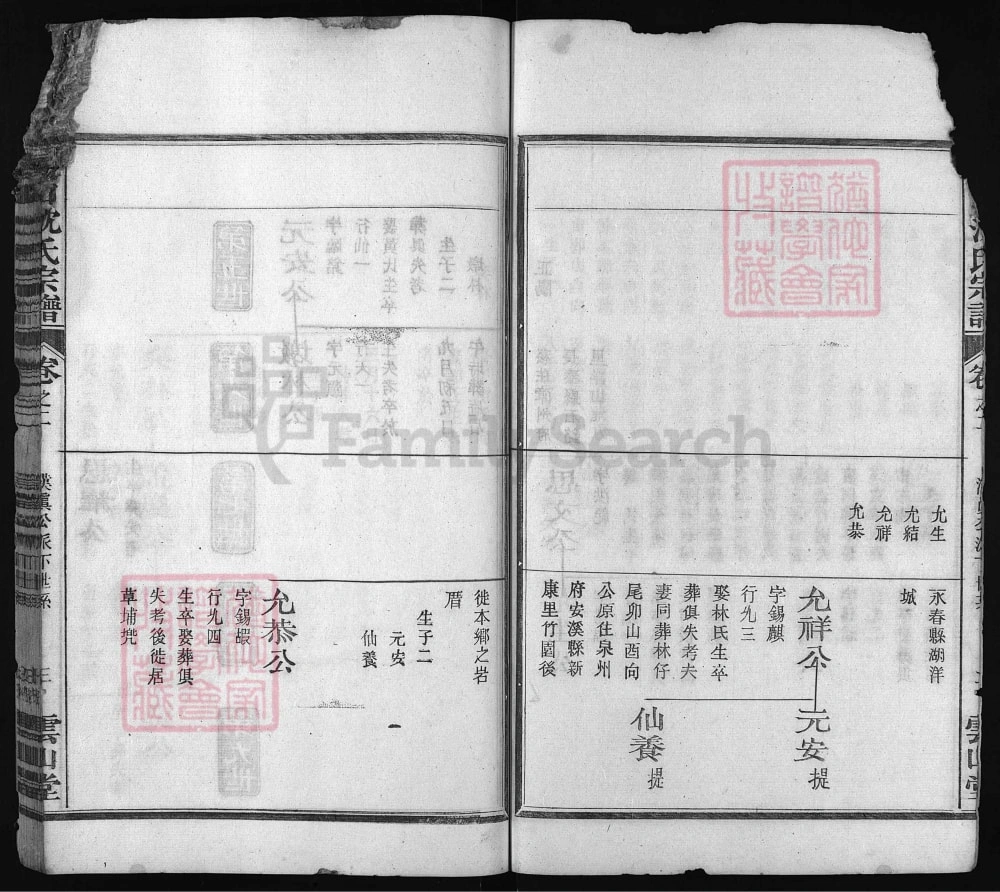 允生
允結
允祥
允恭
永春縣湖洋
城
允祥公
元安 提
字錫麒
行九三
娶林氏生卒
葬俱失考夫
妻同葬林仔
尾卯山酉向
仙養 提
公原住泉州
府安溪縣新
康里竹園後
徙本鄉之岩
厝
生子二
元安
仙養
允恭公
字錫嘏
行九四
生卒娶葬俱
失考後徙居
草埔
沈氏宗譜
卷之
雲山堂
猶他家譜學會收藏
FamilySearch